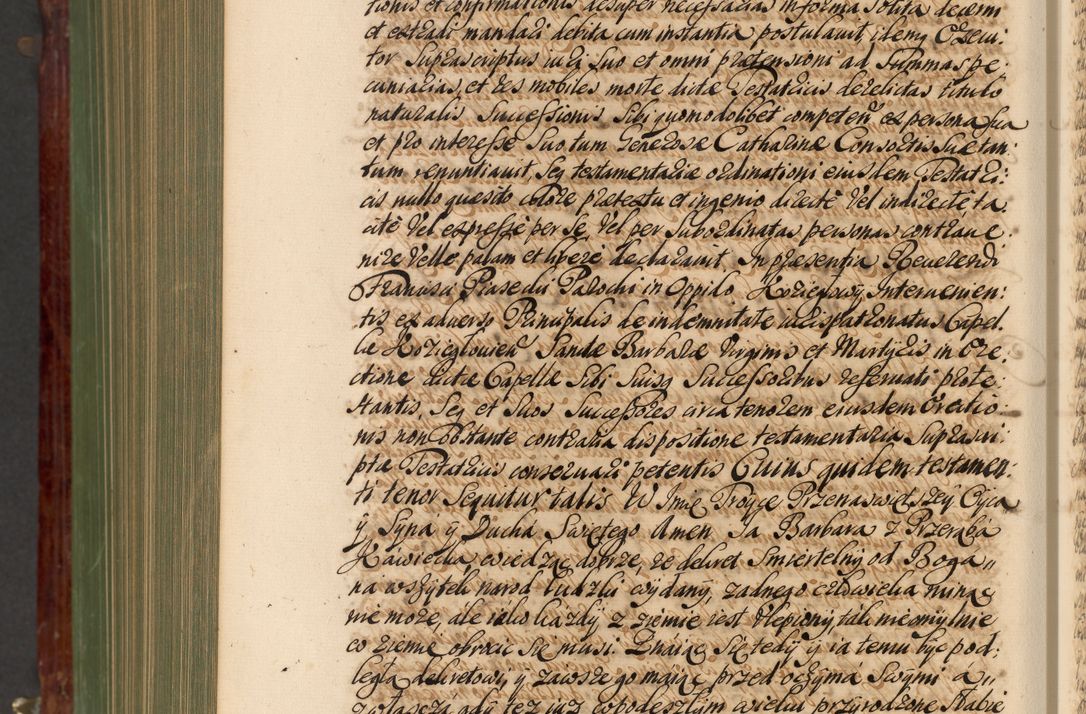 tionis et confirmationis desuper necessarias in forma solita decerni
et extradi mandari debita cum instantia postulavit, idemq Execu:
tor Suprascriptus iuri Suo et omni praetensioni ad Summas pe:
cuniarias, et res mobiles morte dictae Testatricis derelictas titulo
naturalis Successionis Sibi quomodolibet competen ex persona sua
et pro interesse Suo tum Generosae Catharinae Consortis Suae tan:
tum renuntiavit, Seq testamentariae ordinationi eiusdem Testatri:
cis nullo quaesito colore praetextu et ingenio directe vel indirecte, ta:
cite vel expresse per Se, vel per Subordinatas personas contrave:
nire velle palam et libere declaravit, In praesentia Reverendi
Francisci Piasecki Parochi in Oppido Koziegłowy Intervenien:
tis ex adverso Principalis de indemnitate iurispatronatus Capel:
lae Koziegłovien Sanctae Barbarae Virginis et Martyris in Ere:
ctione dictae Capellae Sibi Suisq Successoribus reservati prote:
stantis, Seq et Suos Successores circa tenorem eiusdem Erectio:
nis non obstante contraria dispositione testamentaria Suprascri:
ptae Testatricis conservari petentis Cuius quidem testamen:
ti tenor Sequitur talis W Imie Troyce Przenaswiętszey Oyca
y Syna y Ducha Swiętego Amen Ja Barbara z Przeręba
Kawiecka, wiedząc dobrze, że dekret Smiertelny od Boga,,
na wszytek narod ludzki wydany, żadnego człowieka minąc
nie może, ale iako każdy z ziemie iest ulepiony, tak nieomylnie
w ziemie obrocic się musi. Znaiąc Się tedy y ia temu byc pod:
legła dekretowi y zawsze go maiąc przed oczyma Swymi a,,
zwłaszcza gdy tez iuz w podeszłym wieku przyrodzone Słabie